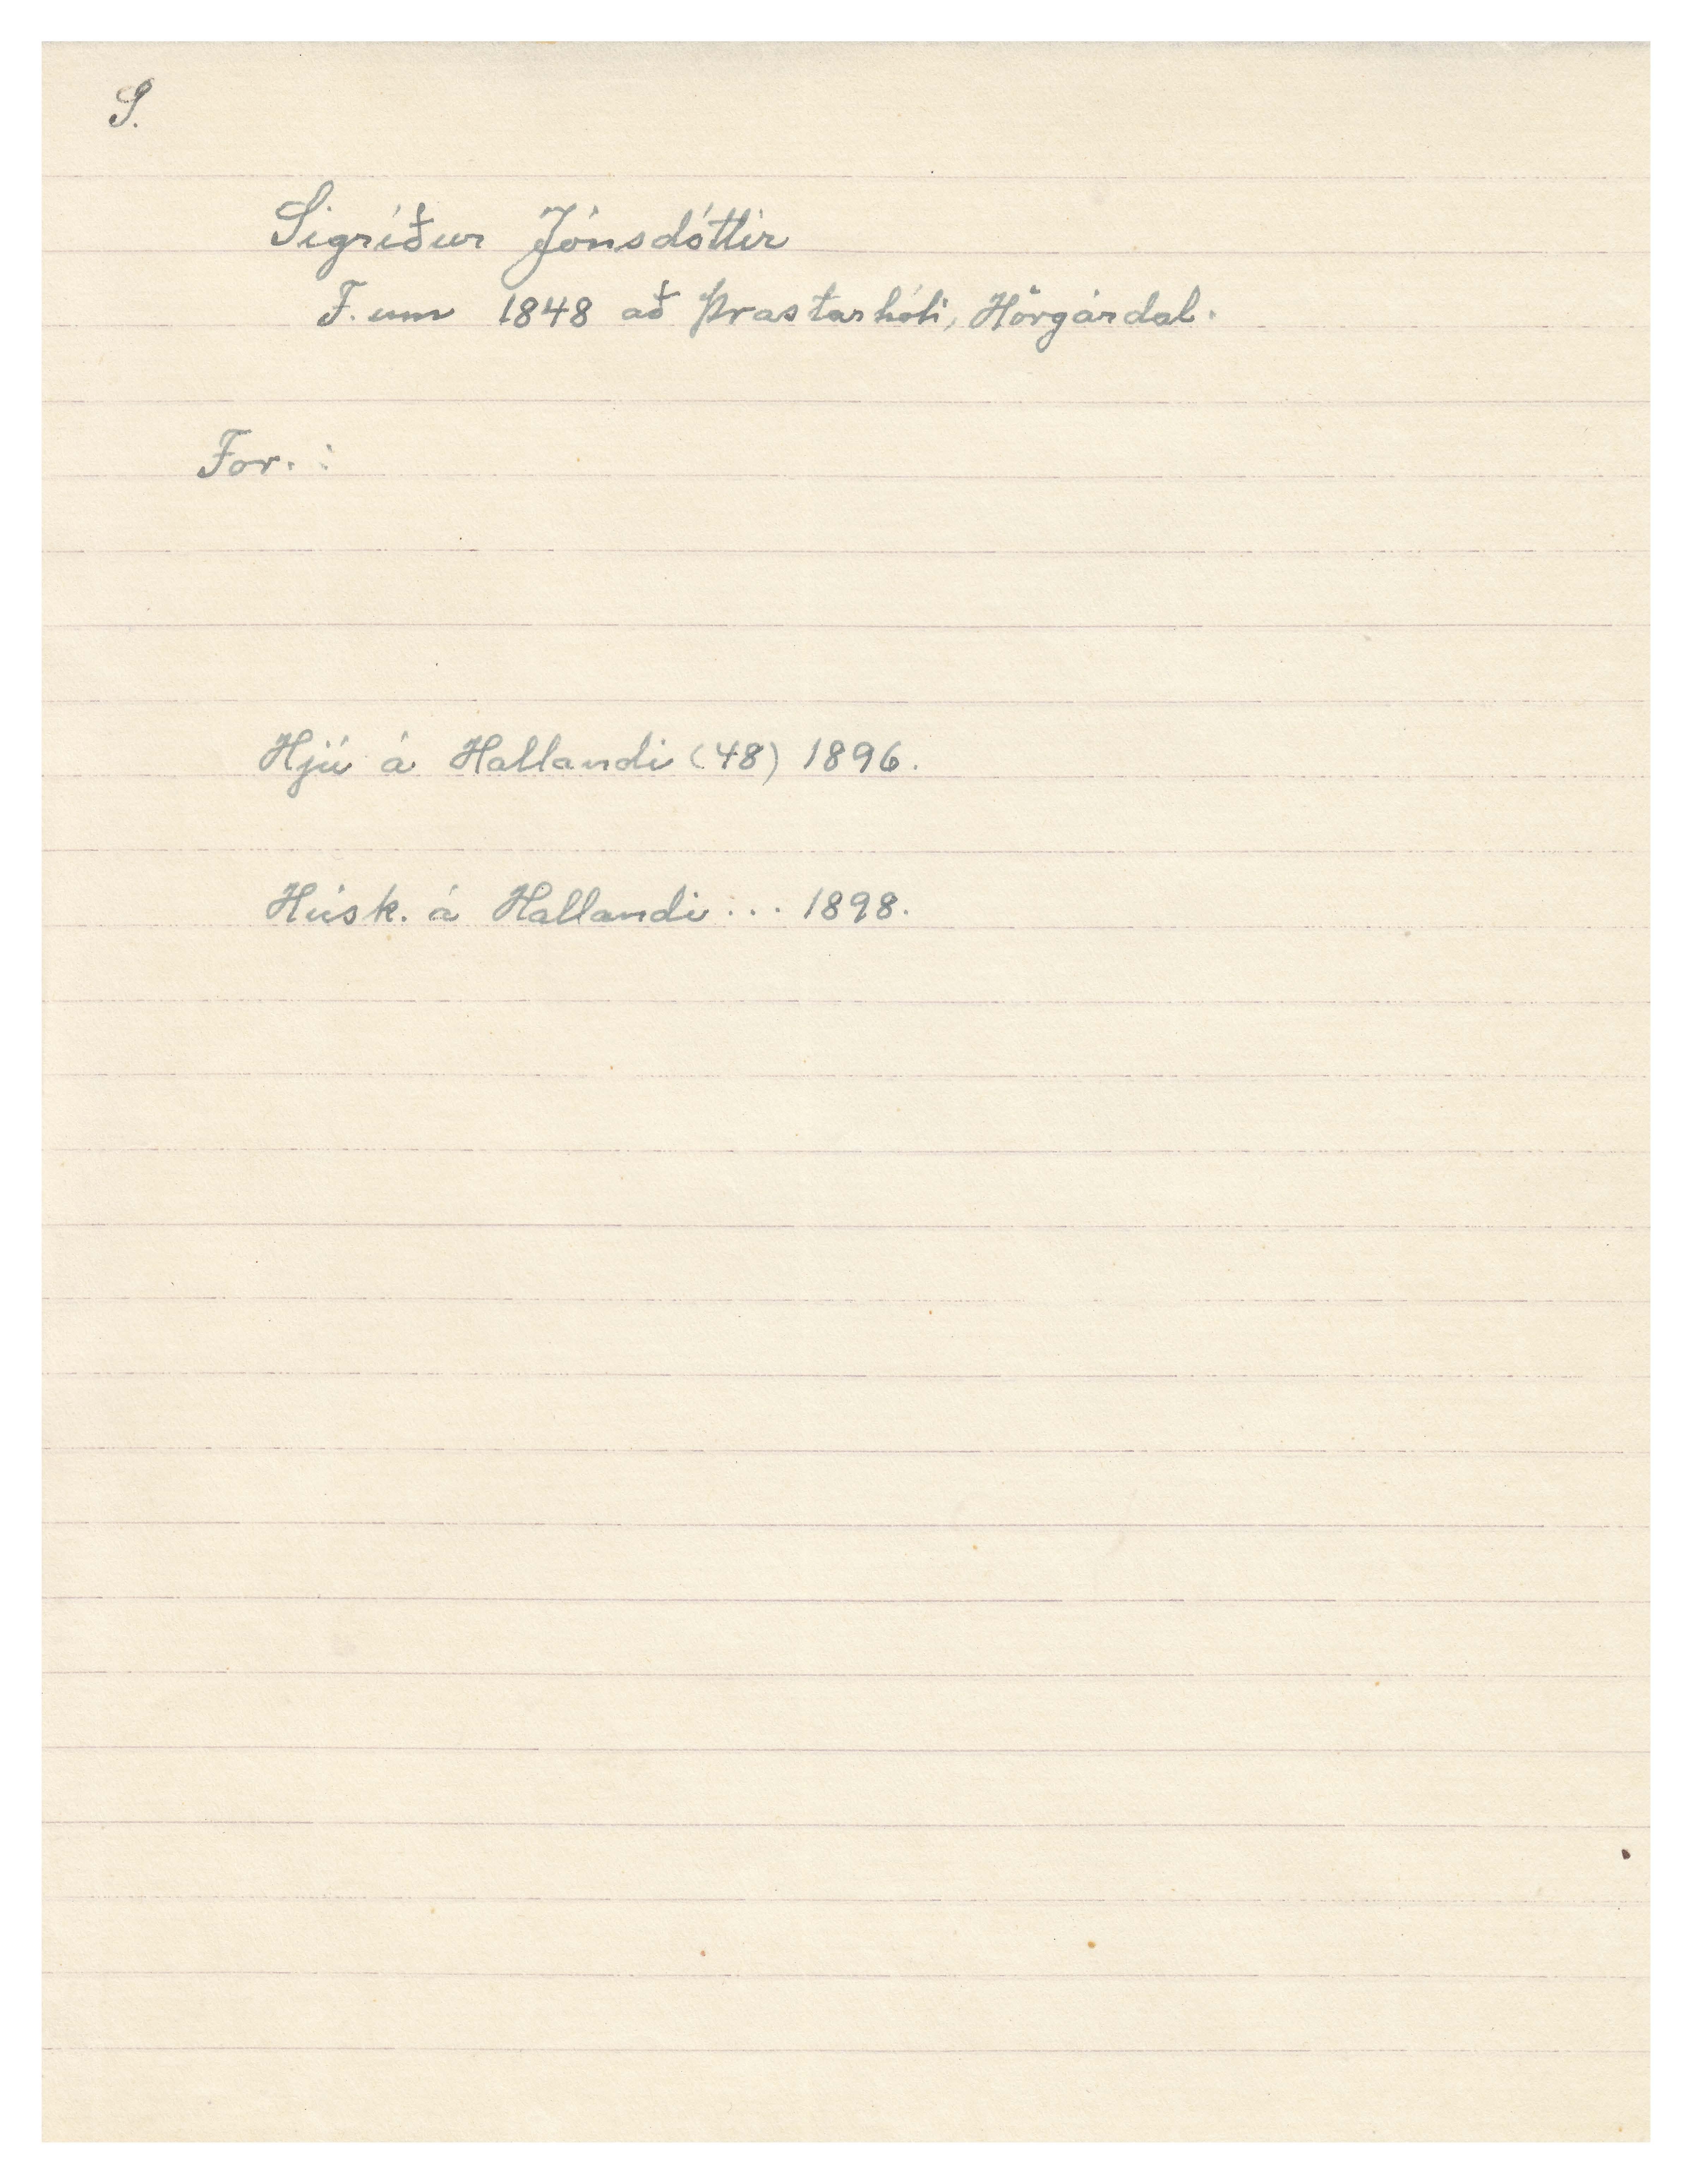 S.
Sigríður Jónsdóttir
F. um 1848 að Þrastarhóli, Hörgárdal.
For. :
Hjú á Hallandi (48) 1896.
Húsk. á Hallandi ... 1898.